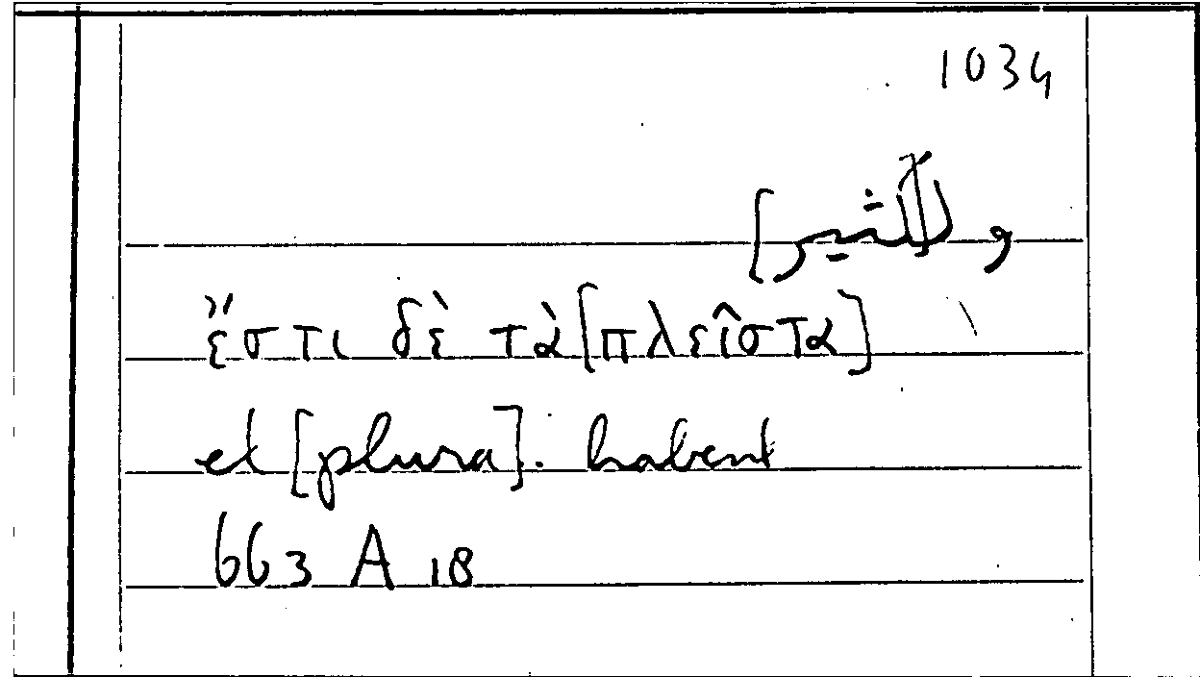 1034
و للكثير]
ἔστι δὲ τὰ [πλεῖστα]
et [plura]. habent
663 A 18